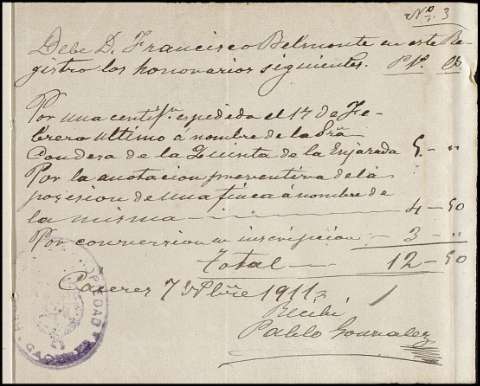 Nº 3
Debe D. Francisco Belmonte en este Re-
gistro los honorarios siguientes. Pts. Cs
Por una certifn. expedida el 14 de Fe-
brero ultimo á nombre de la Srã
Condesa de la Quinta de la Enjarada 5 - "
Por la anotacion preventiva de la
posesion de una finca á nombre de
la misma 4 - 50
Por conversion en inscripcion 3 - "
total 12 - 50
Caceres 7 1911
Recibí
Pablo Gonzalez
CACERES